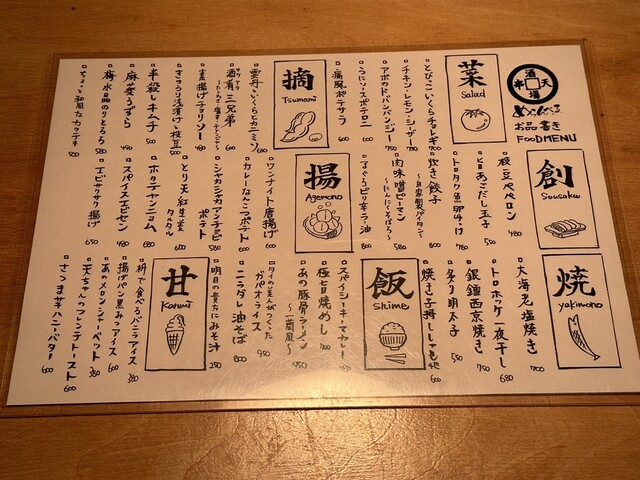 酒場
天
串
お品書き
FOOD MENU
菜
Salad
とびっこいくらチョレギ 700
チキン・レモン・シーザー 730
アボカドバンバンジー 780
うにソースポテロニ 600
痛風ポテサラ 600
摘
Tsumami
雲丹といくらとカニミソ 600
酒肴三兄弟 600
素揚げチョリソー 480
きゅうり浅漬けと枝豆 500
半殺しキムチ 500
麻婆うずら 450
梅水晶のりとろろ 580
ちょっと和風なカクテキ 500
創
Sousaku
枝豆ペペロン 480
旨あごだし玉子 550
トロタク魚卵のっけ 780
炊き餃子 800
肉味噌ピーマン 580
まぐろピリ辛ラー油 800
揚
Agemono
ワンナイト唐揚げ 600
カレーなんこつポテト 600
シャカシャカアンチョビポテト 580
とり天紅生姜タルタル 680
ホッチャンニョム 680
スパイスエビセン 480
エビサクサク揚げ 650
焼
yakimono
大海老塩焼き 700
トロホッケ一夜干し 680
銀鱈西京焼き 750
炙り明太子 550
飯
Shime
スパイシーキーマカレー 950
極旨焼めし 900
あの豚骨ラーメン 950
〜一蘭風〜
タイの美人がつくったガパオライス 950
ニラダレ油そば 800
明日の貴方にみそ汁 250
甘
Kanmi
枡で食べるバニラアイス 380
揚げパン黒みつアイス 600
あのメロンシャーベット 380
天ちゃんフレンチトースト 600
さつま芋ハニーバター 600